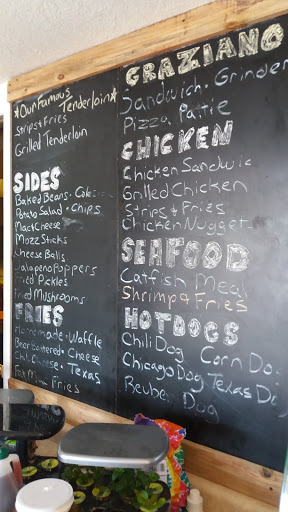 *Our Famous
Tenderloin*
Strips & Fries
Grilled Tenderloin
SIDES
Baked Beans • Coleslaw
Potato Salad • Chips
Mac & Cheese
Mozz Sticks
Cheese Balls
Jalapeno Poppers
Fried Pickles
Fried Mushrooms
FRIES
Homemade • Waffle
Beer battered • Cheese
Chili Cheese • Texas
Fries
GRAZIANO
Sandwich • Grinder
Pizza Pattie
CHICKEN
Chicken Sandwic
Grilled Chicken
Strips & Fries
Chicken Nugget
SEAFOOD
Catfish Meal
Shrimp & Fries
HOTDOGS
Chili Dog Corn Do
Chicago Dog Texas Do
Reuben Dog